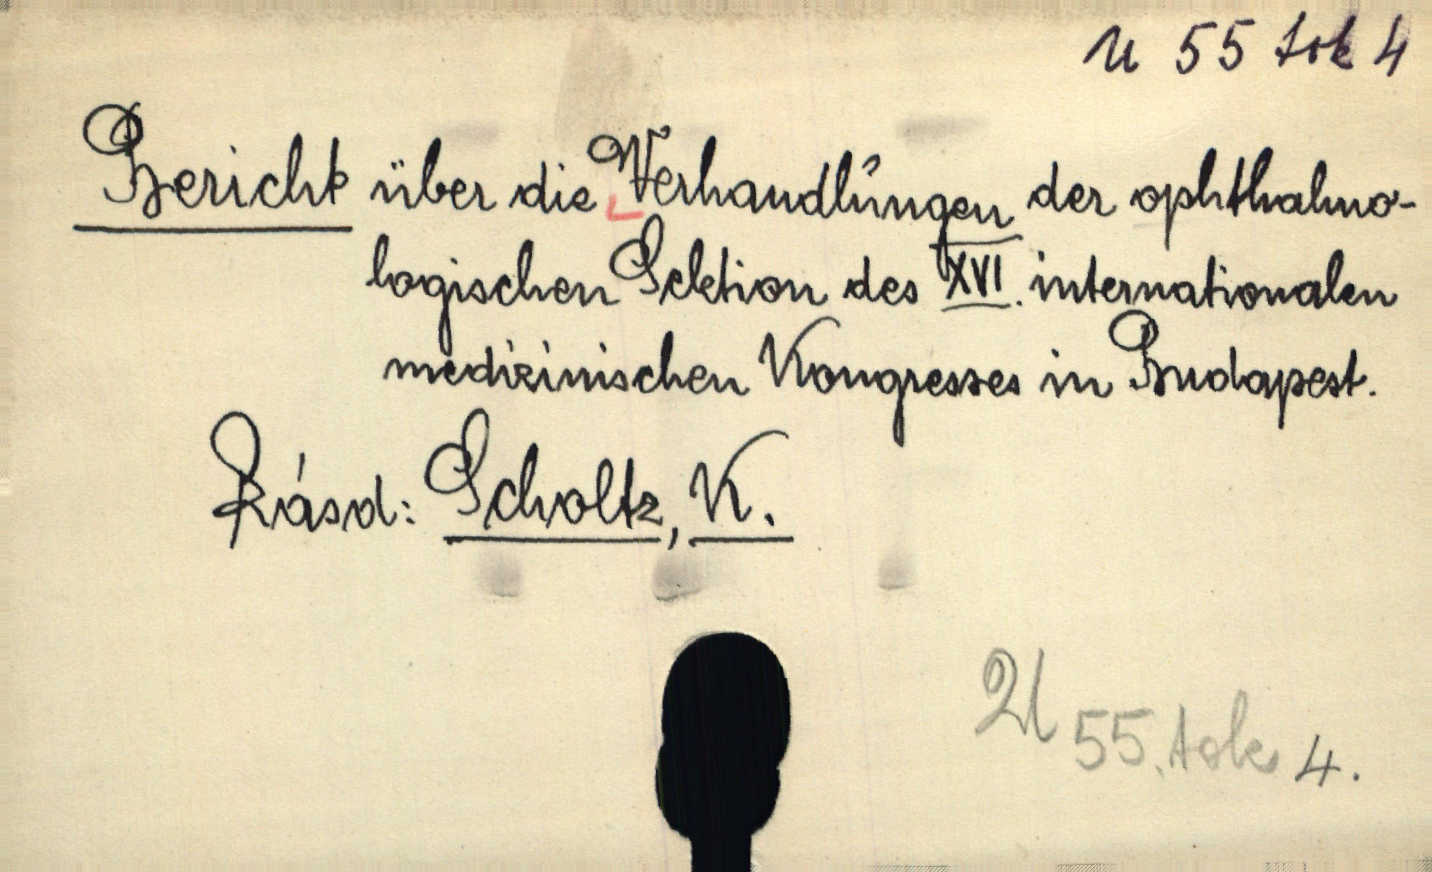 U 55 tok 4
Bericht über die Verhandlungen der ophthalmo-
logischen Sektion des XVI. internationalen
medizinischen Kongresses in Budapest.
Lásd: Scholtz, K.
U 55. tok 4.